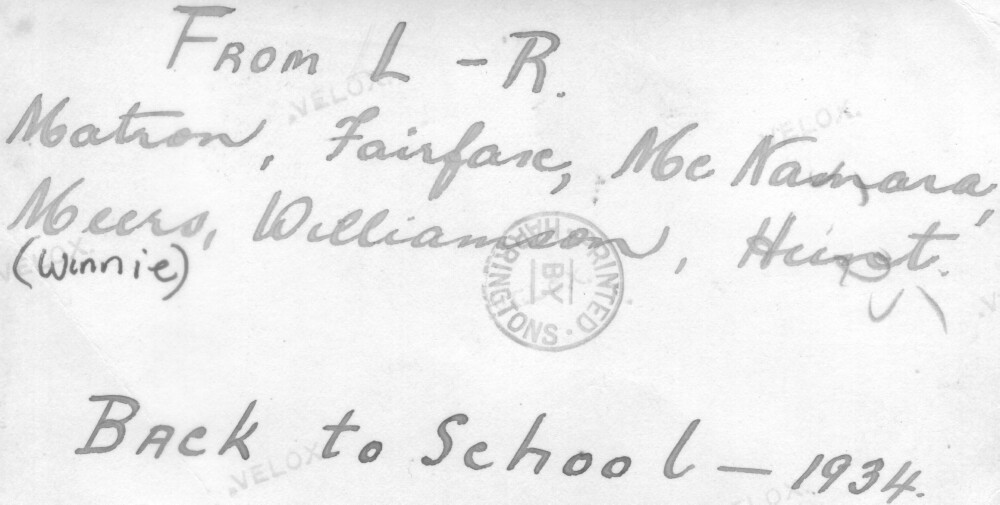 FROM L - R.
Matron, Fairfax, McNamara,
Meers, Williamson, Hurst.
(Winnie)
PRINTED BY HARRINGTONS
Back to School - 1934.
VELOX
VELOX
VELOX
VELOX
VELOX